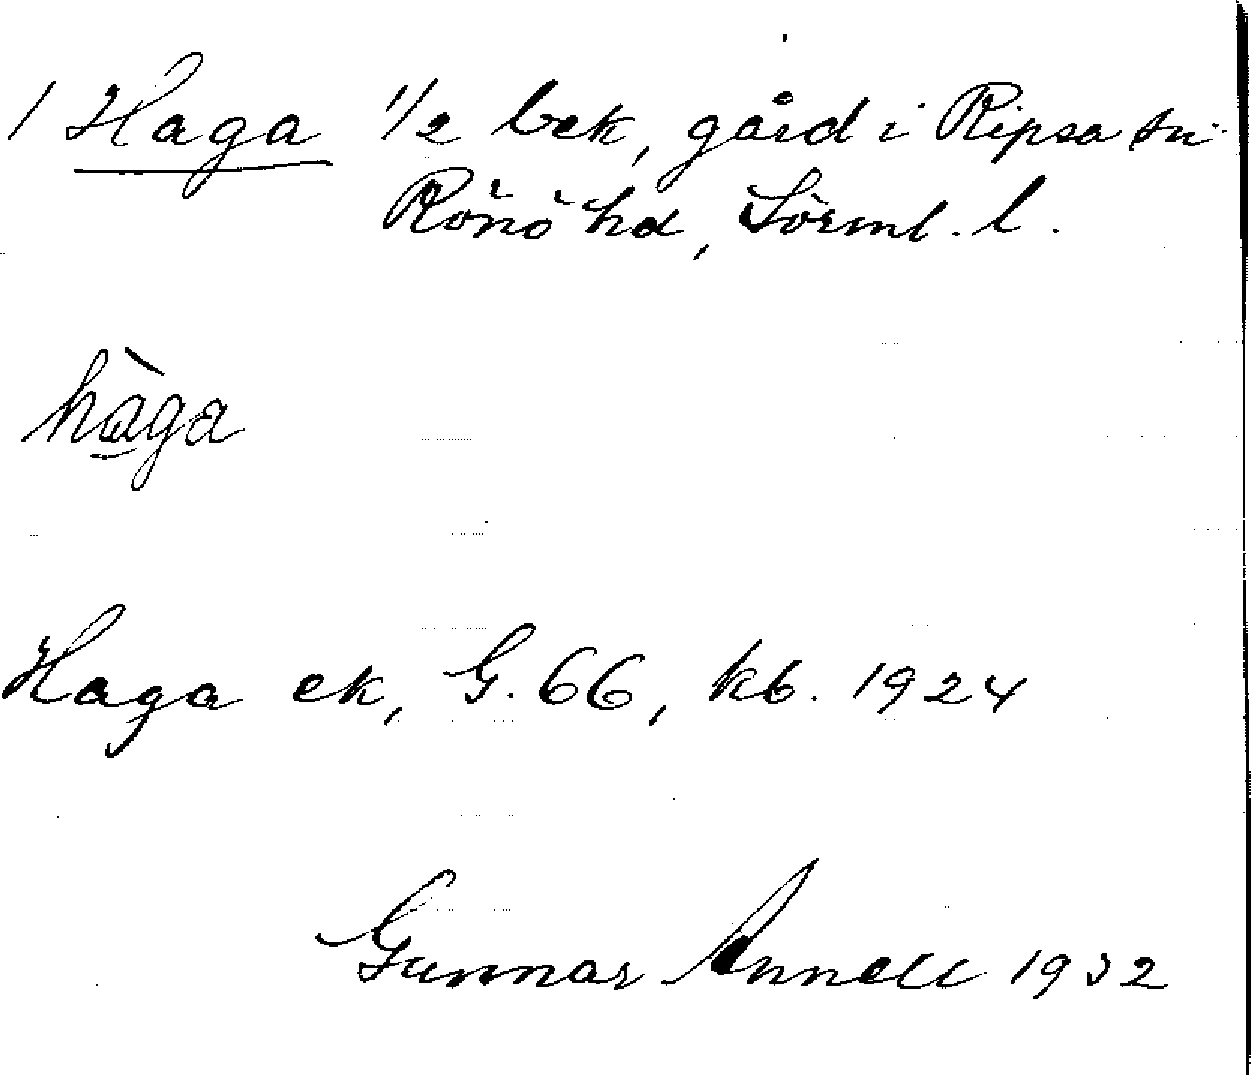 1 Haga 1/2 bek, gård i Ripsa sn
Rönö hd, Sörml. l.
hàga
Haga ek, G. 66, kb. 1924
Gunnar Annell 1932